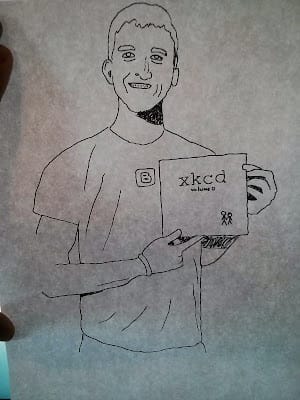 B
xkcd
volume 0